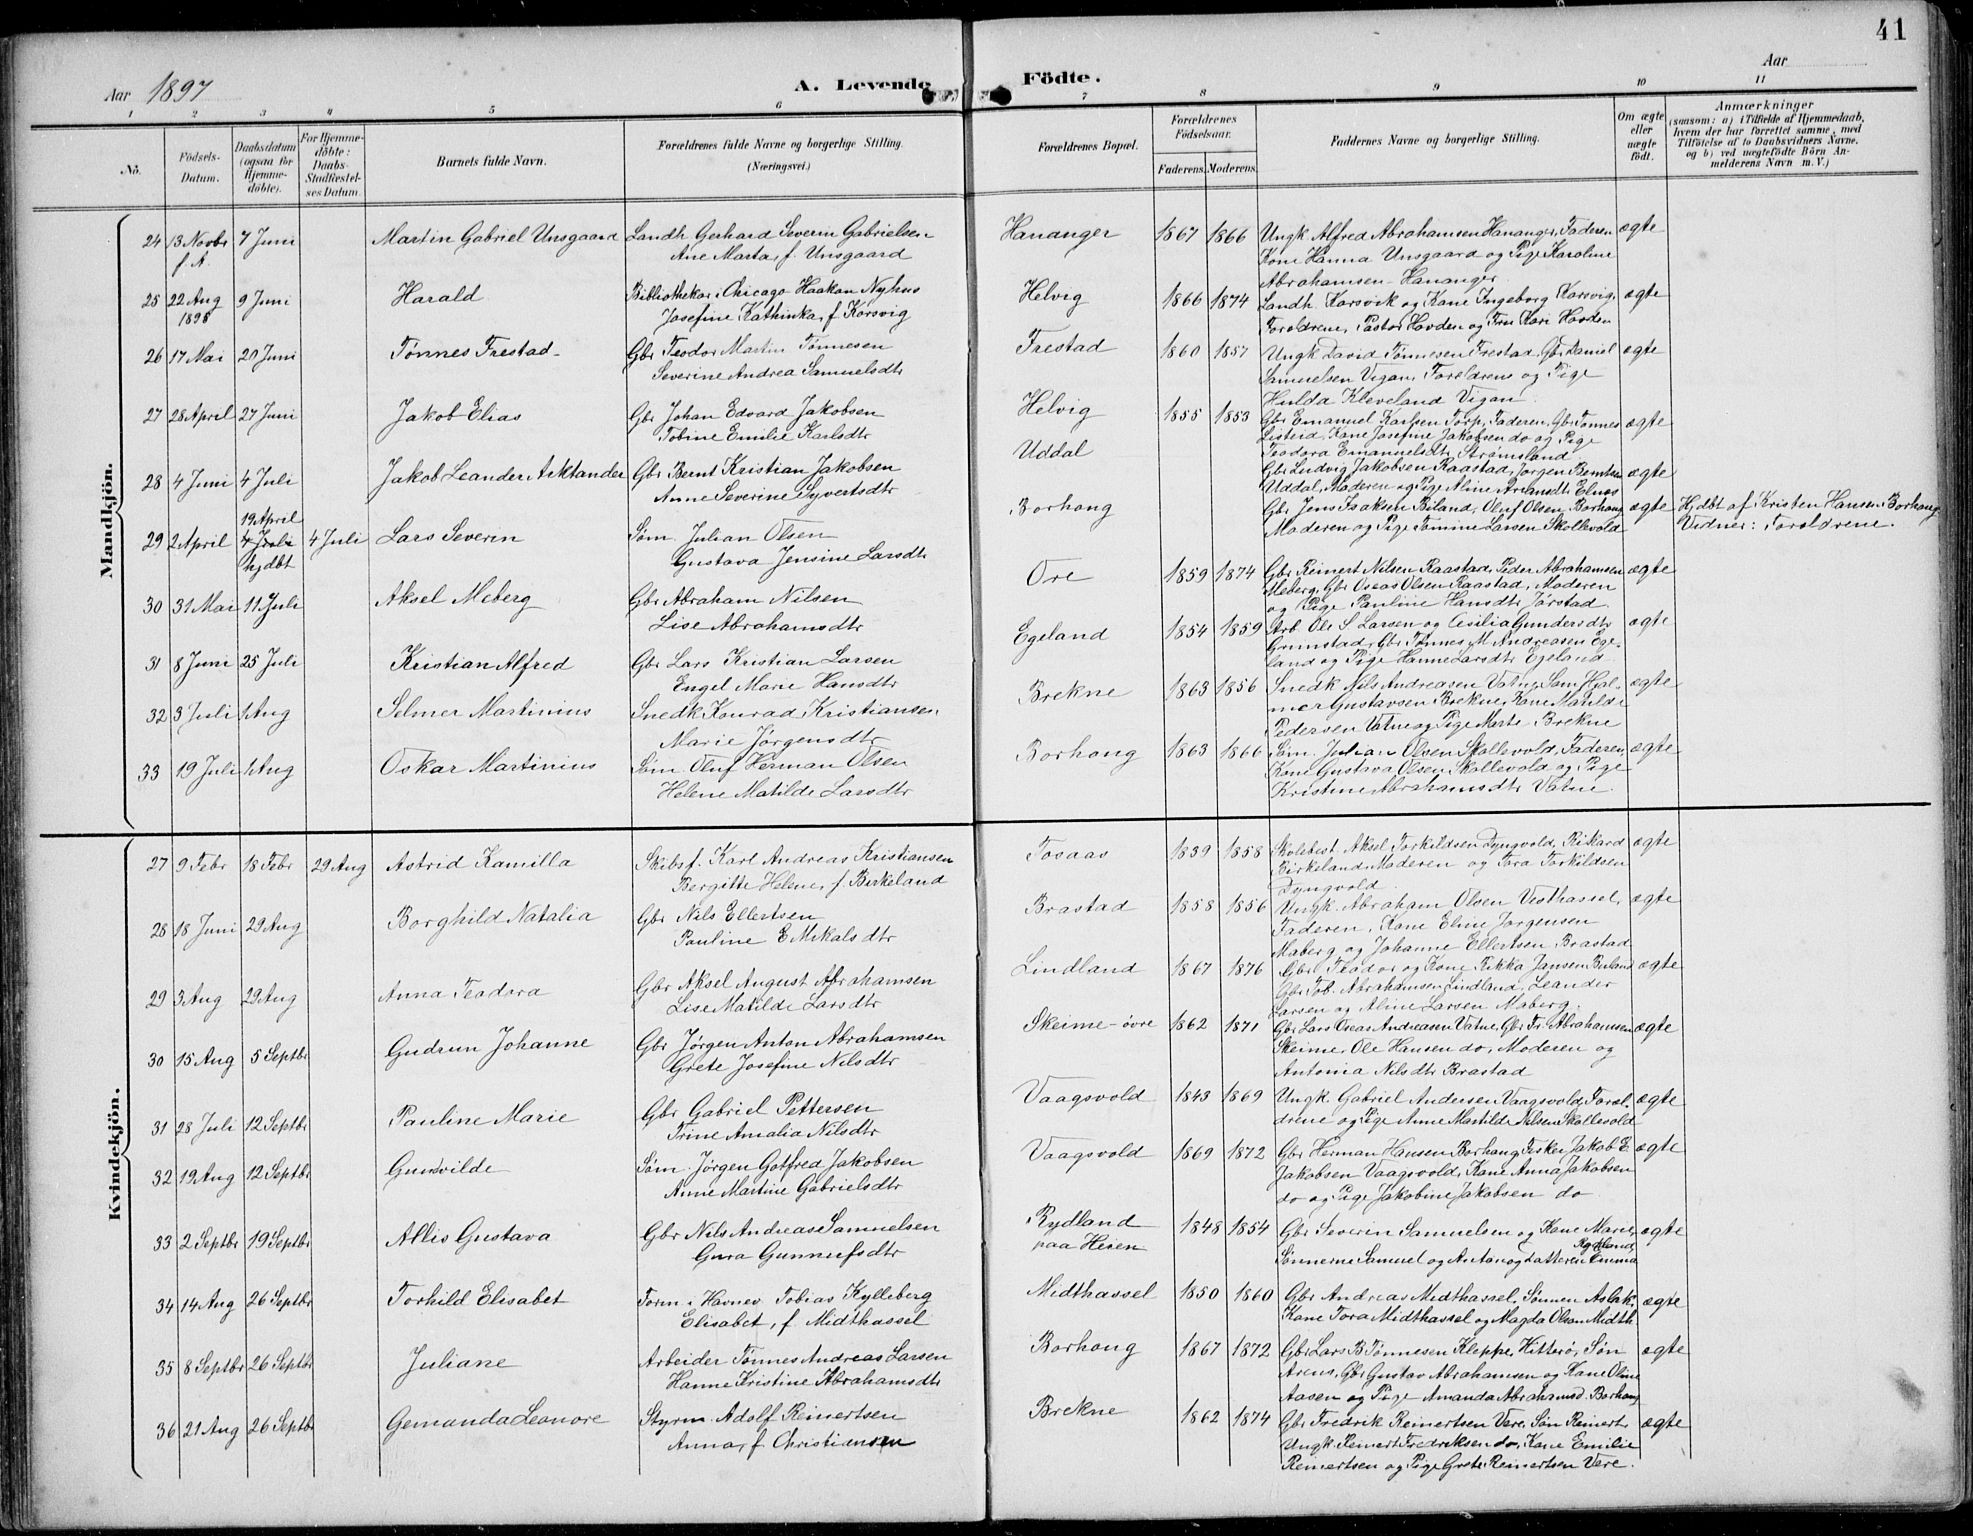 41
Aar 1897
A. Levende Födte.
Aar
1 2 3 4 5 6 7 8 9 10 11
No.
Födsels-Datum.
Daabsdatum (ogsaa for Hjemme-döbte).
For Hjemme-döbte: Daabs-Stadfæstelses Datum.
Barnets fulde Navn.
Forældrenes fulde Navne og borgerlige Stilling. (Næringsvei.)
Forældrenes Bopæl.
Forældrenes Födselsaar.
Faderens. Moderens.
Faddernes Navne og borgerlige Stilling.
Om ægte eller uægte födt.
Anmærkninger (saasom: a) i Tilfælde af Hjemmedaab, hvem der har forrettet samme, med Tilföielse af to Daabsvidners Navne, og b) ved uægtefödte Börn Anmelderens Navn m. V.)
Mandkjön.
24 13 Novbr f. A. 7 Juni Martin Gabriel Unsgaard Landh. Gerhard Severin Gabrielsen Hananger 1867 1866 Ungk Alfred Abrahamsen Hananger, Faderen ægte
Ane Marta, f. Unsgaard Kone Hanna Unsgaard og Pige Karoline
Abrahamsen Hananger
25 22 Aug 1895 9 Juni Harald Bibliothekar i Chicago Haakon Nyhus Helvig 1866 1874 Landh. Korsvik og Kone Ingeborg Korsvig, ægte
Josefine Kathinka, f Korsvig Foreldrene, Pastor Hovden og Fru Kari Hovden
26 17 Mai 20 Juni Tönnes Frestad Gbr Teodor Martin Tönnesen Frestad 1860 1857 Ungk David Tönnesen Frestad, Gbr Daniel ægte
Severine Andrea Samuelsdtr Samuelsen Vigan, Foreldrene og Pige
Hulda Kleveland Vigan
27 28 April 27 Juni Jakob Elias Gbr Johan Edvard Jakobsen Helvig 1855 1853 Gbr Emanuel Karlsen Torp, Faderen, Gbr Tönnes ægte
Tobine Emilie Karlsdtr Listeid, Kone Josefine Jakobsen do og Pige
Teodora Emanuelsdtr Strömsland
28 4 Juni 4 Juli Jakob Leander Arktander Gbr Bernt Kristian Jakobsen Uddal Gbr Ludvig Jakobsen Raastad, Jörgen Berntsen ægte
Anne Severine Syvertsdtr Uddal, Moderen og Pige Aline
29 2 April 19 April 4 Juli hjdbt 4 Juli Lars Severin Söm. Julian Olsen Borhong Gbr Jens Isaksen Biland, Oluf Olsen Borhong ægte Hjdbt af Kristen Hansen Borhong
Gustava Jensine Larsdtr Moderen og Pige Tomine Larsen Skollevold Vidner: Foreldrene.
30 31 Mai 11 Juli Aksel Meberg Gbr Abraham Nilsen Ore 1859 1874 Gbr Reinert Nilsen Raastad, Peder Abrahamsen ægte
Lise Abrahamsdtr Meberg, Gbr Oseas Olsen Raastad, Moderen
og Pige Pauline Hansdtr Jörstad
31 8 Juni 25 Juli Kristian Alfred Gbr Lars Kristian Larsen Egeland 1854 1859 Arb Ole S Larsen og Cesilia Gundersdtr ægte
Engel Marie Hansdtr Grimstad, Gbr Tönnes M Andreasen Ege-
land og Pige Hanne Larsdtr Egeland
32 3 Juli 1 Aug Selmer Martinius Snedk Konrad Kristiansen Brekne 1863 1856 Snedk Nils Andreasen Vatne, Söm Hjal- ægte
Marie Jörgensdtr mer Gustavsen Brekne, Kone Matilde
Pedersen Vatne og Pige Marte Brekne
33 19 Juli 1 Aug Oskar Martinius Söm Oluf Herman Olsen Borhong 1863 1866 Söm. Julian Olsen Skollevold, Faderen, ægte
Helene Matilde Larsdtr Kone Gustava Olsen Skollevold og Pige
Kristine Abrahamsdtr Vatne.
Kvindekjön.
27 9 Febr 18 Febr 29 Aug Astrid Kamilla Skibsf. Karl Andreas Kristiansen Tosaas 1839 1858 Skolebest. Aksel Torkildsen Dyngvold, Rikard ægte
Bergitte Helene, f. Birkeland Birkeland, Moderen og Tora Torkildsen
Dyngvold
28 18 Juni 29 Aug Borghild Natalia Gbr Nils Ellertsen Brastad 1858 1856 Ungk. Abraham Olsen Vesthassel, ægte
Pauline E Mikalsdtr Faderen, Kone Eline Jörgensen
Maberg og Johanne Ellertsen Brastad
29 3 Aug 29 Aug Anna Teodora Gbr Aksel August Abrahamsen Lindland 1867 1876 Gbr Teodor og Kone Rikka Jansen Briland ægte
Lise Matilde Larsdtr Gbr Tob. Abrahamsen Lindland, Leander
Larsen og Aline Larsen Maberg.
30 15 Aug 5 Septbr Gudrun Johanne Gbr Jörgen Anton Abrahamsen Skeime-övre 1862 1871 Gbr Lars Oseas Andreasen Vatne, Gbr Tr. Abrahamsen ægte
Grete Josefine Nilsdtr Skeime, Ole Hansen do, Moderen og
Antonia Nilsdtr Brastad
31 28 Juli 12 Septbr Pauline Marie Gbr Gabriel Pettersen Vaagsvold 1843 1869 Ungk. Gabriel Andersen Vaagsvold, Foræl- ægte
Trine Amalia Nilsdtr drene og Pige Anne Martilde Nilsen Skollevold
32 19 Aug 12 Septbr Gunvilde Söm. Jörgen Gotfred Jakobsen Vaagsvold 1869 1872 Gbr Herman Hansen Borhong, Fisker Jakob E. ægte
Anne Martine Gabrielsdtr Jakobsen Vaagsvold, Kone Anna Jakobsen
do og Pige Jakobine Jakobsen do
33 2 Septbr 19 Septbr Allis Gustava Gbr Nils Andreas Samuelsen Rydland paa Heien 1848 1854 Gbr Severin Samuelsen og Kone Marie, Rydland, ægte
Gura Gunnufsdtr Sönnerne Samuel og Anton og Datteren Emma
34 14 Aug 26 Septbr Torhild Elisabet Form. i Havnev Tobias Kylleberg Midthassel 1850 1860 Gbr Andreas Midthassel, Sönnen Aslak, ægte
Elisabet, f Midthassel Kone Tora Midthassel og Magda Olsen Midth.
35 8 Septbr 26 Septbr Juliane Arbeider Tönnes Andreas Larsen Borhong 1867 1872 Gbr Lars B Tönnesen Kleppe, Hitterö, Sön ægte
Hanne Kristine Abrahamsdtr Arens, Gbr Gustav Abrahamsen og Kone Oline
Aasen og Pige Amanda Abrahamsd. Borhong
36 21 Aug 26 Septbr Gemanda Leonore Styrm. Adolf Reinertsen Brekne 1862 1874 Gbr Fredrik Reinertsen Vere, Sön Reinert, ægte
Anna, f. Christiansen Ungk. Reinert Fredriksen do, Kone Emilie
Reinertsen og Pige Grete Reinertsen Vere.